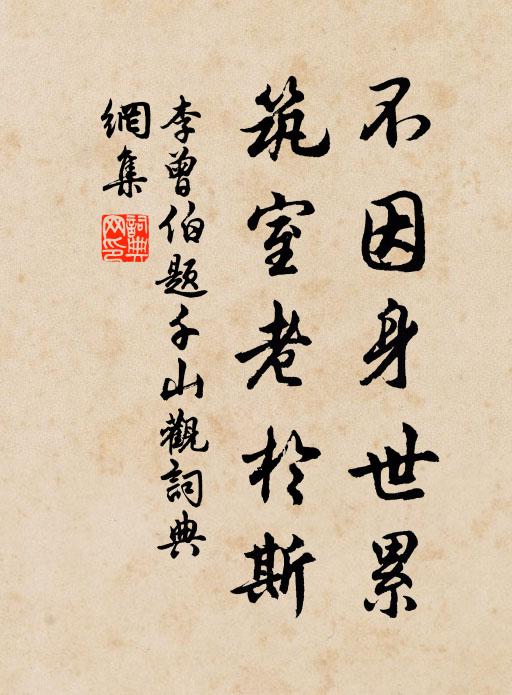 不因身世累
筑室老於斯
李曾伯题千山觀詞典
網集
詞典网印